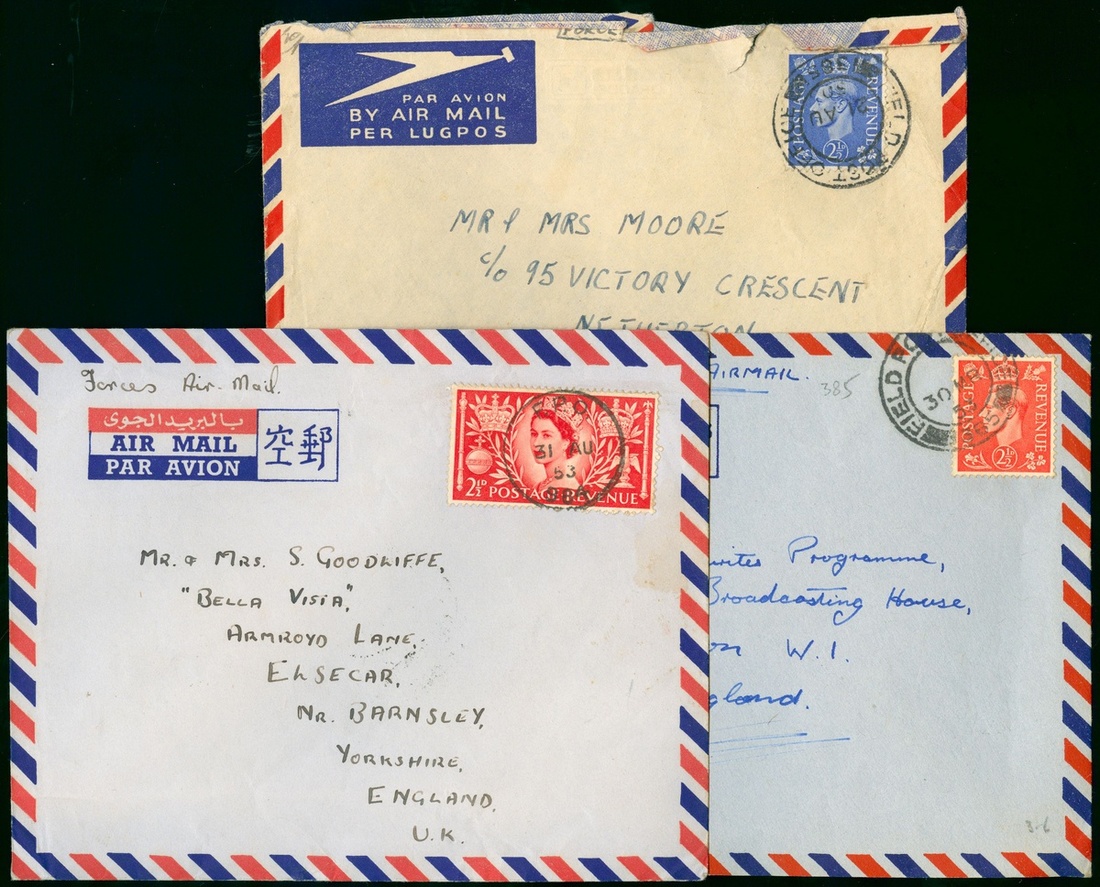 FORCE
PAR AVION
BY AIR MAIL
PER LUGPOS
POSTAGE REVENUE
2½D
FIELD POST OFFICE
AU
50
MR & MRS MOORE
c/o 95 VICTORY CRESCENT
NETHERTON
Forces Air Mail.
بالبريد الجوى
AIR MAIL
PAR AVION
空郵
F.P.O.
31 AU
53
2½D POSTAGE REVENUE
MR. & MRS. S. GOODLIFFE,
"BELLA VISTA",
ARMROYD LANE,
ELSECAR,
NR. BARNSLEY,
YORKSHIRE,
ENGLAND.
U.K.
AIRMAIL.
385
FIELD POST
30
POSTAGE REVENUE
2½D
Programme,
Broadcasting House,
W.1.
3-6